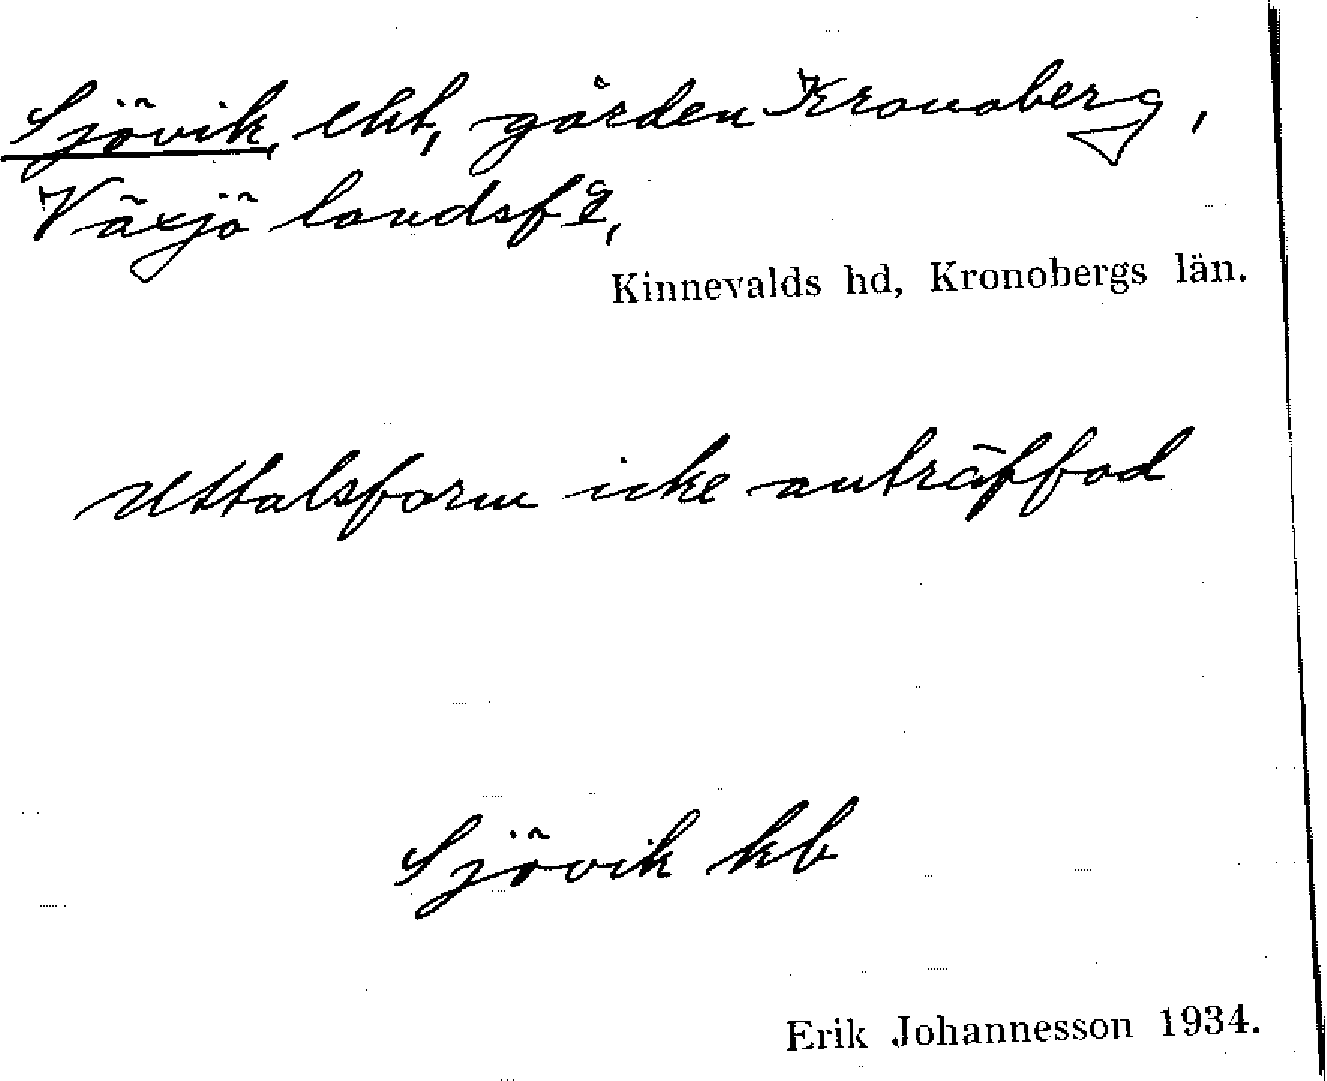 Sjövik, lht, gården Kronoberg,
Växjö landsfg,
Kinnevalds hd, Kronobergs län.
Uttalsform icke anträffad
Sjövik kb
Erik Johannesson 1934.